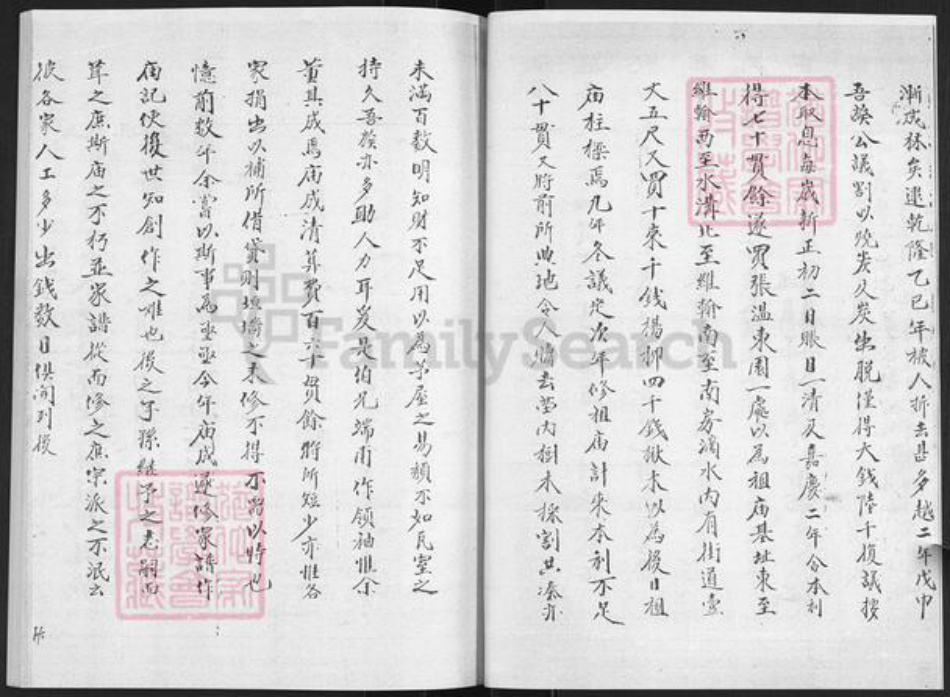 漸成林矣逮乾隆乙巳年被人折去甚多越二年戊申
吾族公議割以燒炭及炭出脫僅得大錢陸千復議按
本取息每歲新正初二日賬目一清及嘉慶二年合本利
得七十貫餘遂買張溫東園一處以為祖廟基址東至
維翰西至水溝北至維翰南至南房滴水內有街道壹
丈五尺又買十來千錢楊柳四十錢以為後日祖
廟柱樑焉九年冬議定次年修祖廟計來本利不足
八十貫又將前所典地令人贖去塋內樹木採割共湊亦
未滿百數明知財不足用以為茅屋之易頹不如瓦室之
持久吾族亦多助人力耳爰是伯兄端甫作領袖惟余
董其成焉廟成清算費百三十貫餘將所短少亦惟各
家捐出以補所借貸則垣墻之未修不得不留以待也
憶前數年余嘗以斯事為亟亟今年廟成遂修家譜作
廟記使後世知創作之唯也後之子孫繼予之志嗣而
葺之庶斯廟之不朽並家譜從而修之庶宗派之不泯云
彼各家人工多少出錢數目俱開列後
FamilySearch